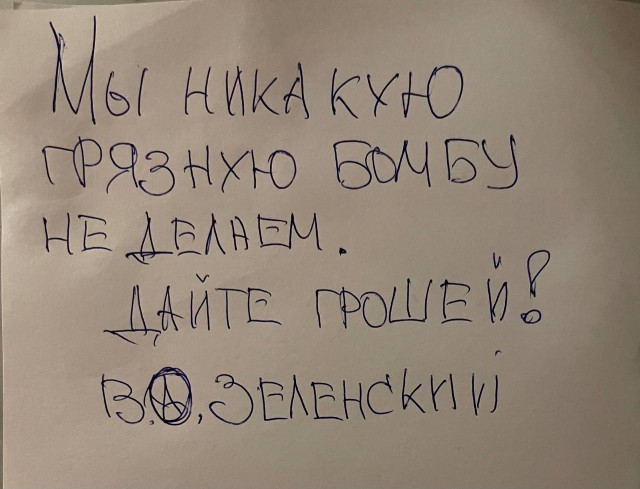 Мы никакую
грязную бомбу
не делаем.
Дайте грошей!
В.А. Зеленский